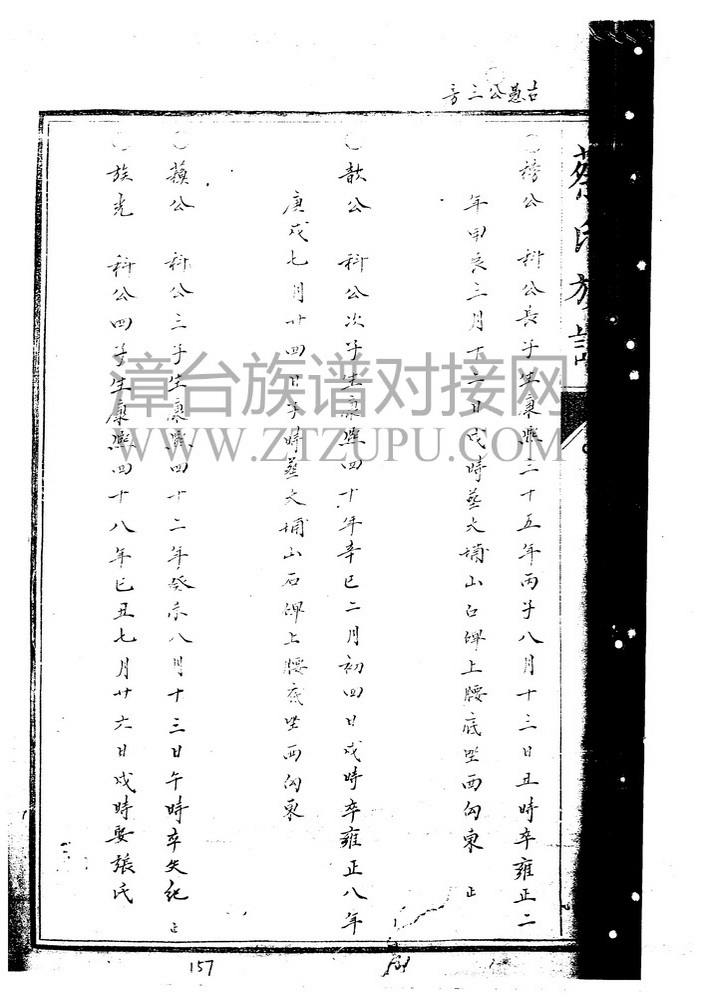 古愚公三房
蔡氏族譜
〇榜公 科公長子生康熙三十五年丙子八月十三日丑時卒雍正二
年甲辰三月十六日戌時葬大埔山石碑上腰底坐西向東 止
〇歆公 科公次子生康熙四十年辛巳二月初四日戌時卒雍正八年
庚戌七月廿四日子時葬大埔山石碑上腰底坐西向東
〇蘋公 科公三子生康熙四十二年癸未八月十三日午時卒失紀 止
〇族光 科公四子生康熙四十八年已丑七月廿六日戌時娶張氏
漳台族谱对接网
WWW.ZTZUPU.COM
157